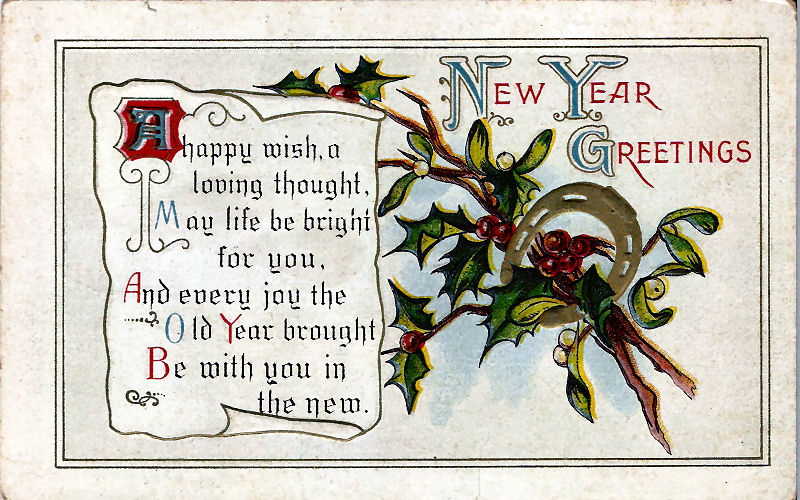 NEW YEAR
GREETINGS
A happy wish, a
loving thought,
May life be bright
for you,
And every joy the
Old Year brought
Be with you in
the new.